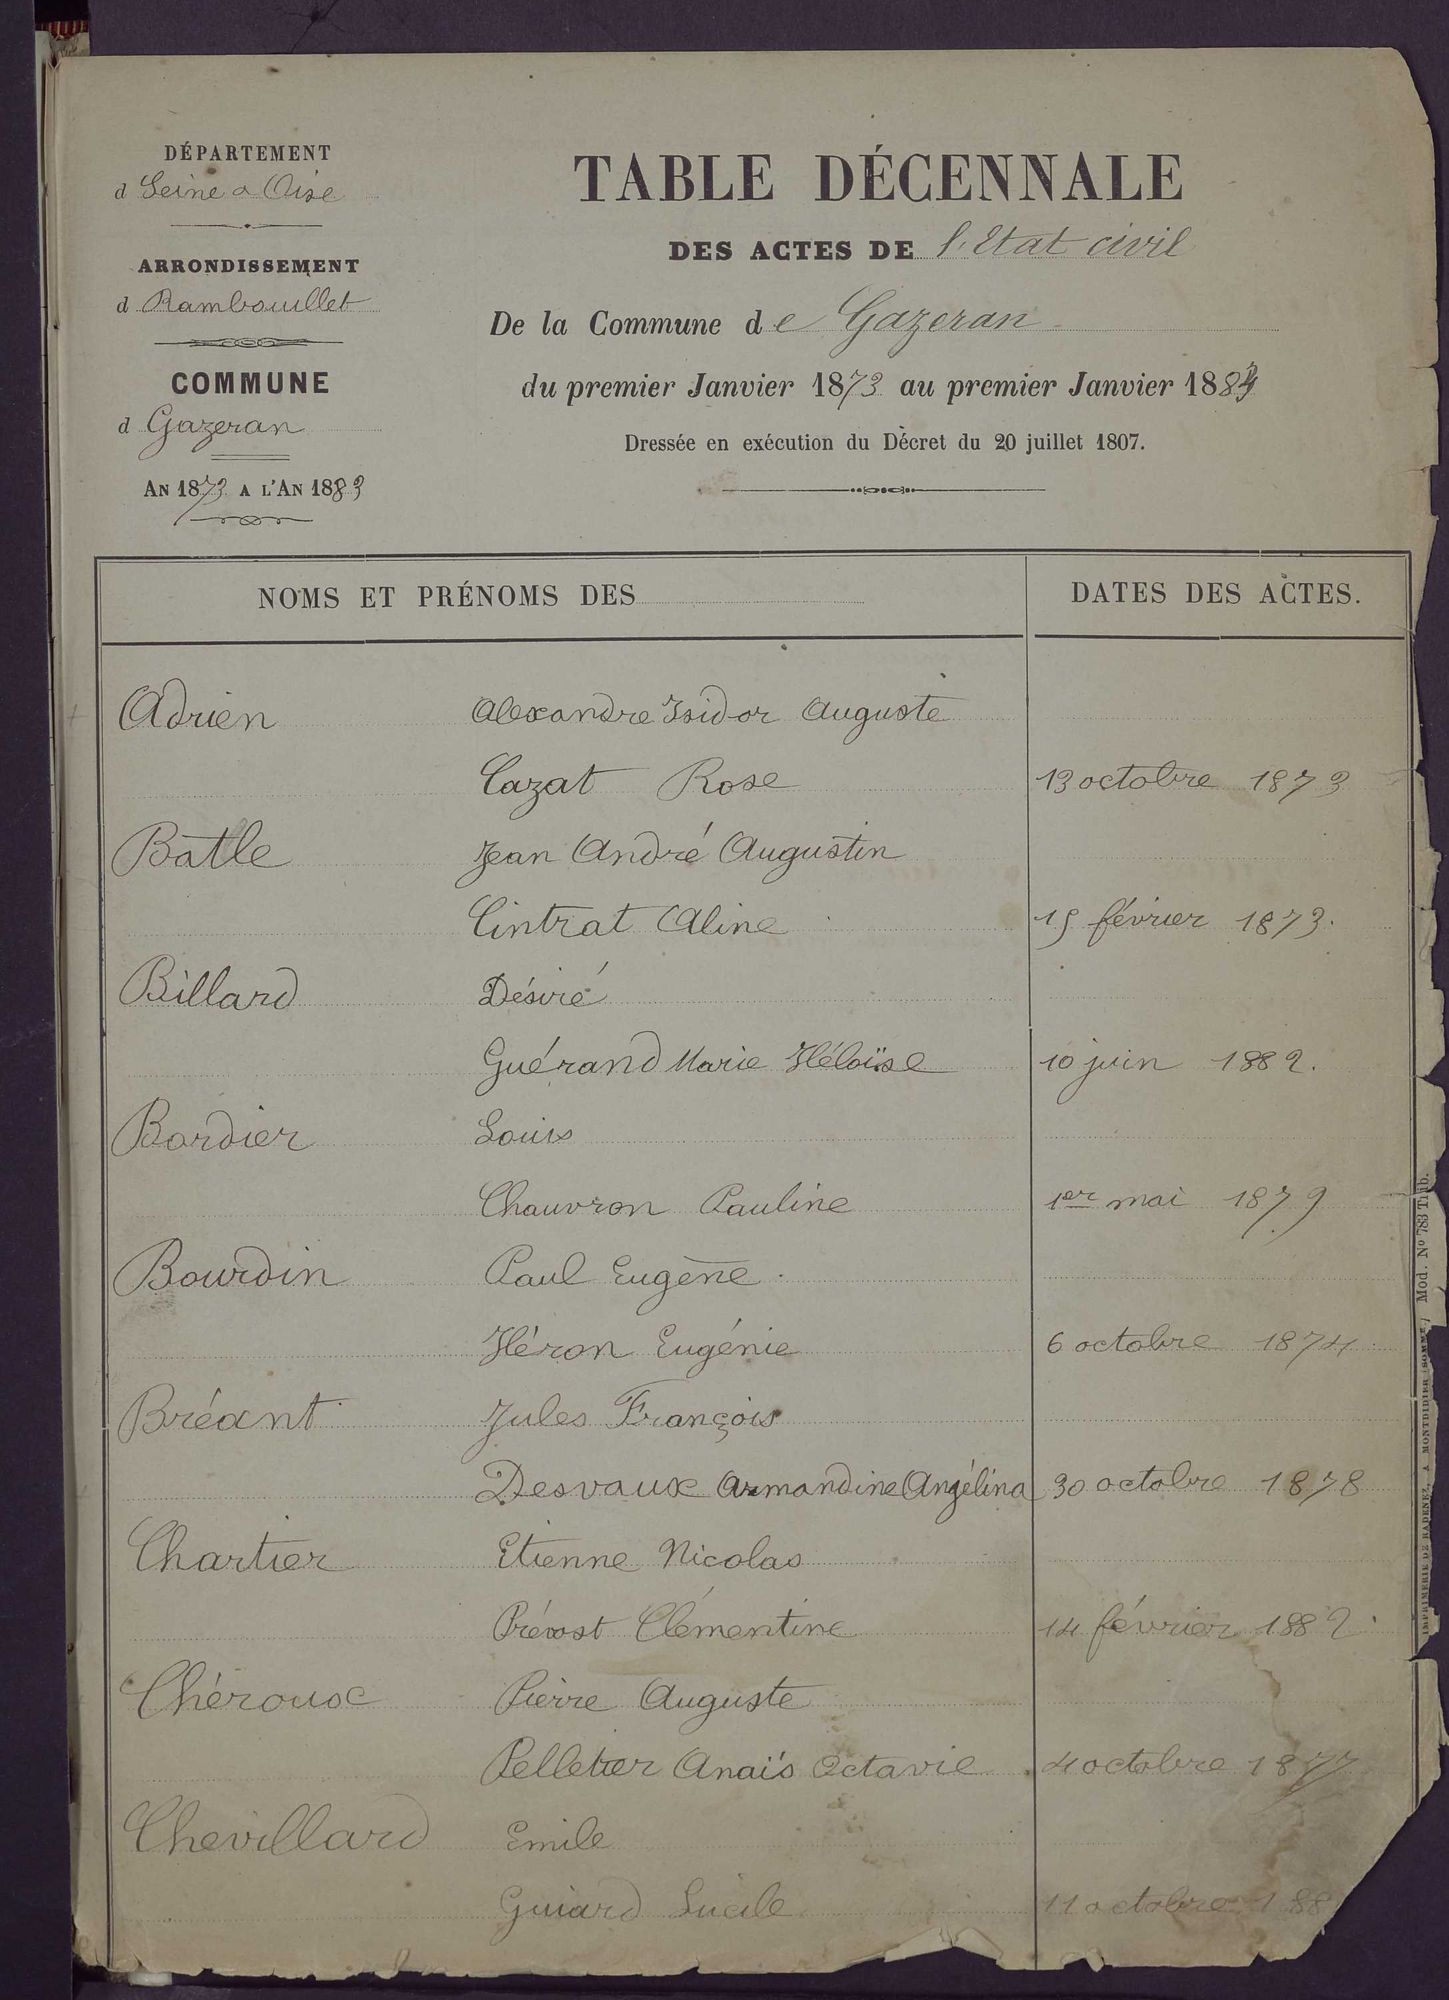 DÉPARTEMENT
d Seine & Oise
ARRONDISSEMENT
d Rambouillet
COMMUNE
d Gazeran
AN 1873 A L'AN 1883
TABLE DÉCENNALE
DES ACTES DE l'Etat civil
De la Commune de Gazeran
du premier Janvier 1873 au premier Janvier 1883
Dressée en exécution du Décret du 20 juillet 1807.
NOMS ET PRÉNOMS DES
DATES DES ACTES.
Adrien Alexandre Isidor Auguste
Cazat Rose 13 octobre 1873
Batle Jean André Augustin
Cintrat Aline 15 février 1873.
Billard Désiré
Guérand Marie Héloïse 10 juin 1882.
Bordier Louis
Chauvron Pauline 1er mai 1879
Bourdin Paul Eugène.
Héron Eugénie 6 octobre 1874
Bréant Jules François
Desvaux Armandine Angélina 30 octobre 1878
Chartier Etienne Nicolas
Prévost Clémentine 14 février 1882
Chéroux Pierre Auguste
Pelletier Anaïs Octavie 4 octobre 1877
Chevillard Emile
Guiard Lucile 11 octobre 188
IMPRIMERIE DE RADENEZ, A MONTDIDIER (SOMME) Mod. No 783 Trib.